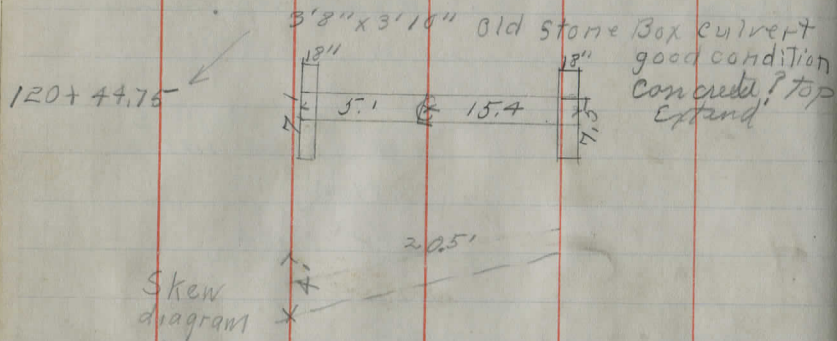 3'8" x 3'10" Old Stone Box Culvert
good condition
Concrete? top
Extend
18"
18"
120+44.75
7.1
5.1
15.4
7.5
20.5'
4.1
Skew
diagram